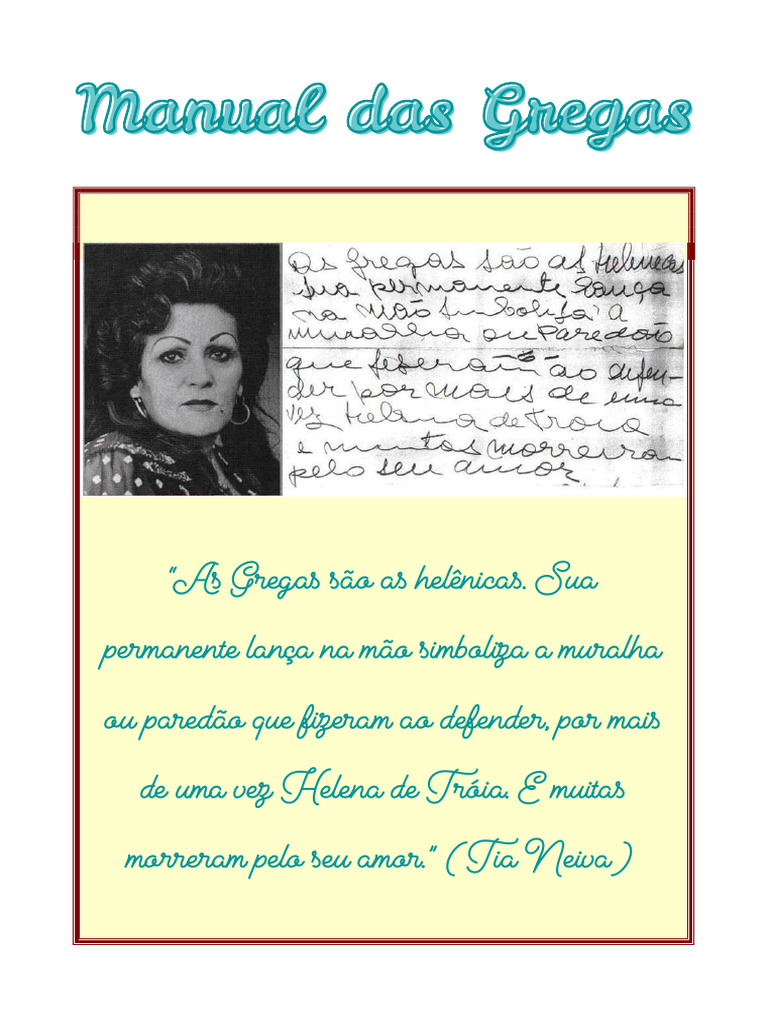 Manual das Gregas
As Gregas são as Helenicas
sua permanente lança
na mão simboliza a
muralha ou Paredão
que fizeram ao defen-
der por mais de uma
vez Helena de Troia
e muitas morreram
pelo seu amor
"As Gregas são as helênicas. Sua
permanente lança na mão simboliza a muralha
ou paredão que fizeram ao defender, por mais
de uma vez Helena de Tróia. E muitas
morreram pelo seu amor." (Tia Neiva)